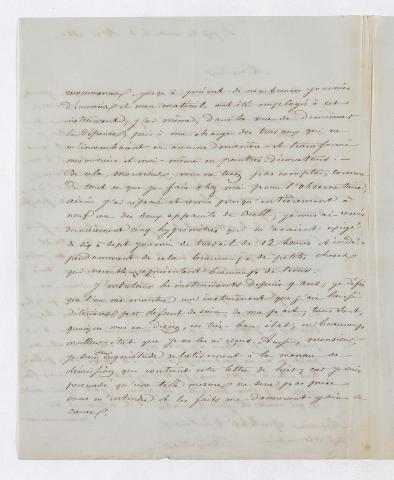 jusqu'à présent de nombreuses journées
d'ouvriers et mon matériel ont été employés à cet
instrument, j'ai même, dans la vue de diminuer
la dépense, pris à ma charge des travaux qui ne
m'incombaient en aucune manière et transformé
mes ouvriers et moi-même en peintres décorateurs. —
De cela, monsieur, vous ne tenez pas compte, comme
de tout ce que je fais chez moi pour l'observatoire,
ainsi j'ai repris et remis presqu'entièrement à
neuf un des deux appareils de
dernièrement cinq hygromètres qui m'avaient exigé
de six à sept journées de travail de 12 heures et indé-
pendamment de cela beaucoup de petites choses
qui ensemble représentent beaucoup de temps.
J'entretiens les instruments depuis 9 ans, je défie
que l'on me montre un instrument que j'aie laissé
détériorer par défaut de soins de ma part, tous sont,
quoique vous en disiez, en très-bon état, en beaucoup
meilleur état que je ne les ai reçus. Aussi, monsieur,
je suis sans inquiétude relativement à la menace de
démission que contient votre lettre de hier, car je suis
persuadé qu'une telle mesure ne sera pas prise
sans m'entendre et les faits me donneront gain de
cause.